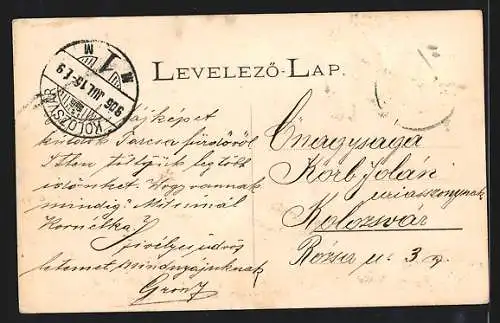 LEVELEZŐ-LAP.
KOLOZSVÁR
906 JUL 15
M
N 1
tájképet
küldök Tarcsa fürdőről
Itten töltjük legtöbb
időnket. Hogy vannak
mindig? Mit csinál
Kornélka?
Szívélyes üdvöz
letemet mindnyájuknak
Önagysága
Korb Jolán
uriasszonynak
Kolozsvár
Rózsa u. 3 sz.